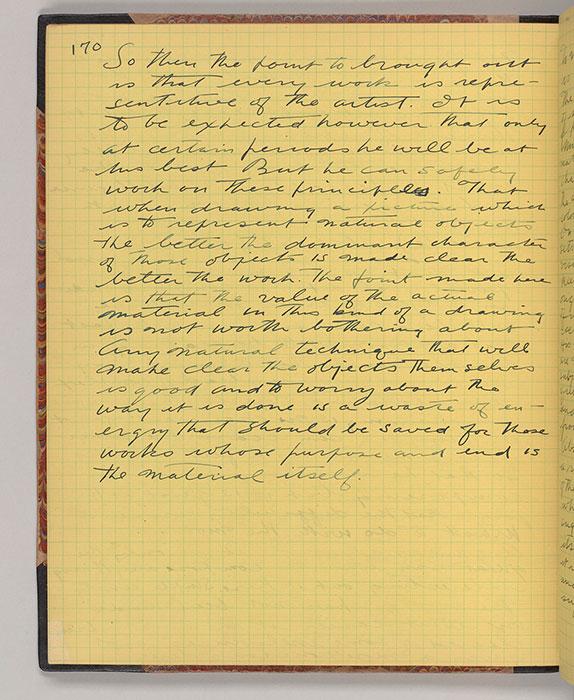 170
So then the point to brought out
is that every work is repre-
sentitive of the artist. It is
to be expected however that only
at certain periods he will be at
his best But he can safely
work on these principles. That
when drawing a picture which
is to represent natural objects
the better the dominant character
of those objects is made clear the
better the work. The point made here
is that the value of the actual
material in this kind of a drawing
is not worth bothering about
Any natural technique that will
make clear the objects themselves
is good and to worry about the
way it is done is a waste of en-
ergy that should be saved for those
works whose purpose and end is
the material itself.